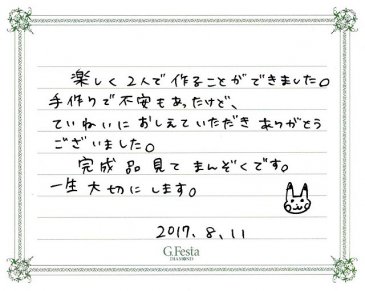 楽しく2人で作ることができました。
手作りで不安もあったけど、
ていねいにおしえていただきありがとう
ございました。
完成品見てまんぞくです。
一生大切にします。
2017.8.11
G.Festa
DIAMOND